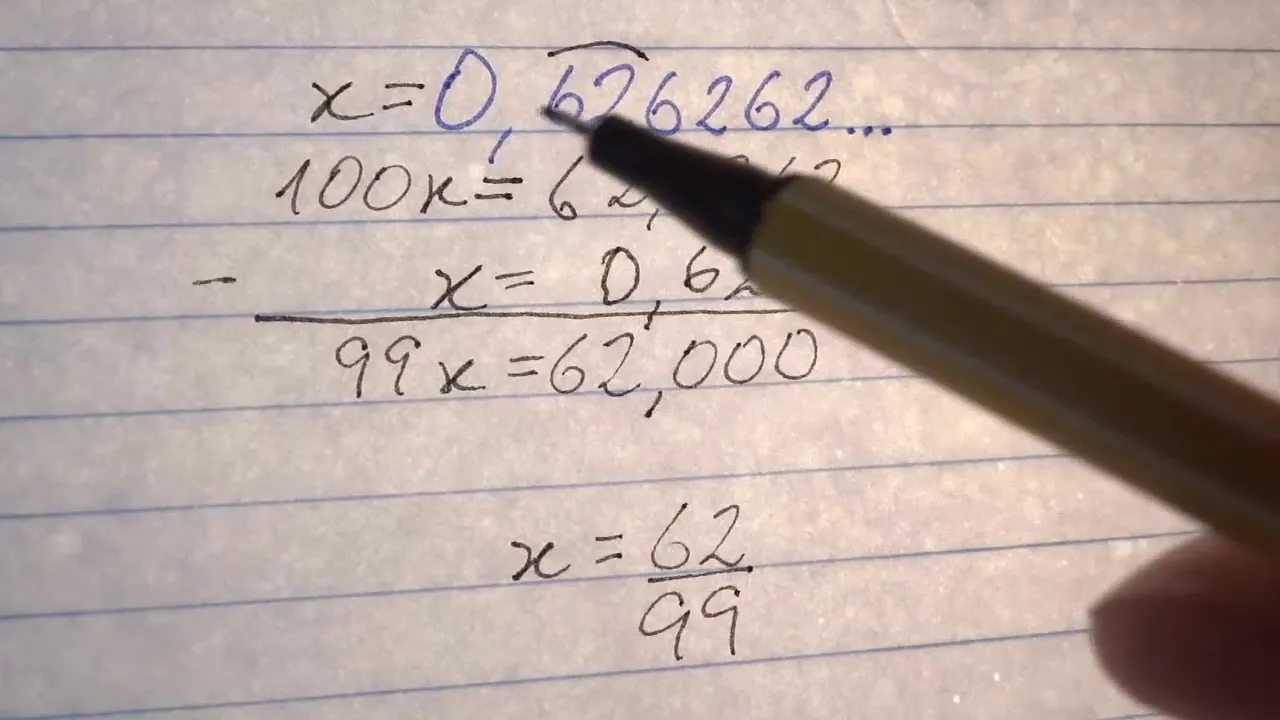 x=0,626262...
100x=62,
- x= 0,62
99x=62,000
x=62/99